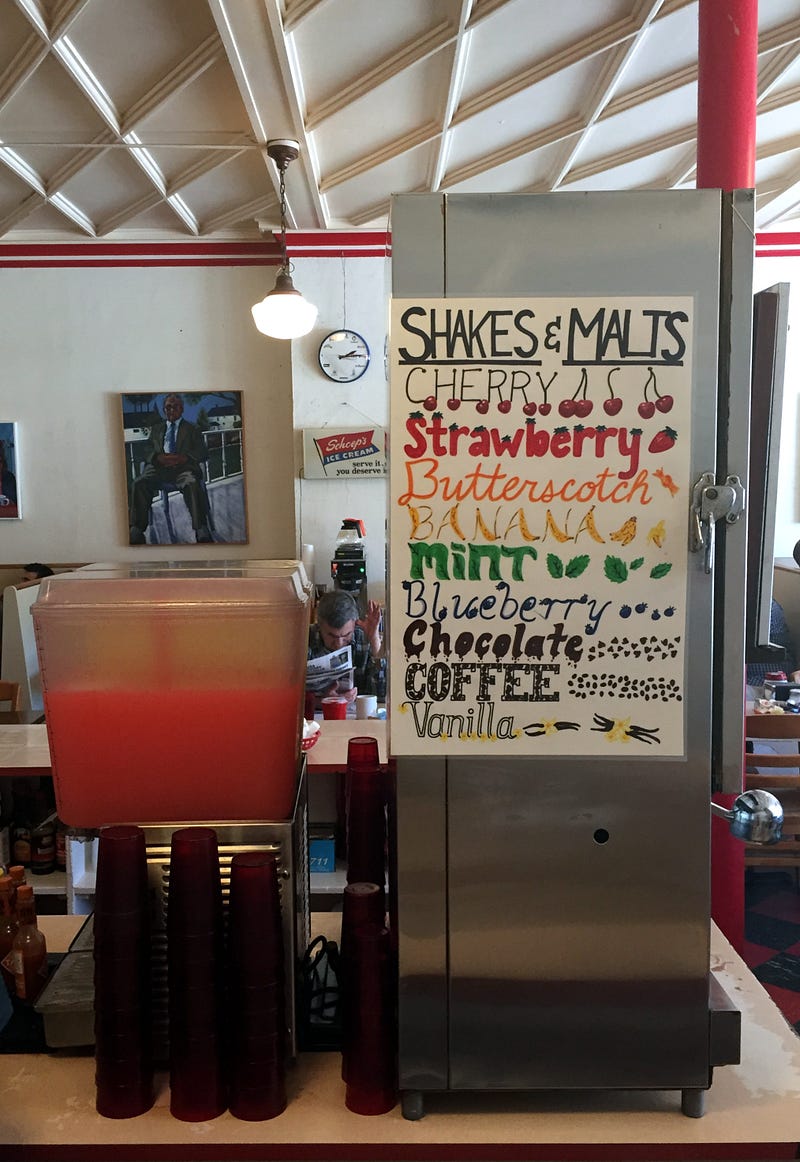 SHAKES & MALTS
CHERRY
Strawberry
Butterscotch
BANANA
MINT
Blueberry
Chocolate
COFFEE
Vanilla
Schoep's
ICE CREAM
serve it
you deserve
711